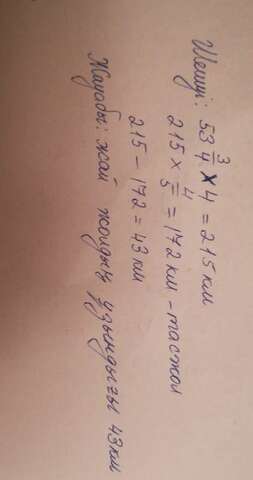 Шешуі: 53 3/4 × 4 = 215 км
215 × 4/5 = 172 км - тас жол
215 - 172 = 43 км
Жауабы: жай жолдың ұзындығы 43 км